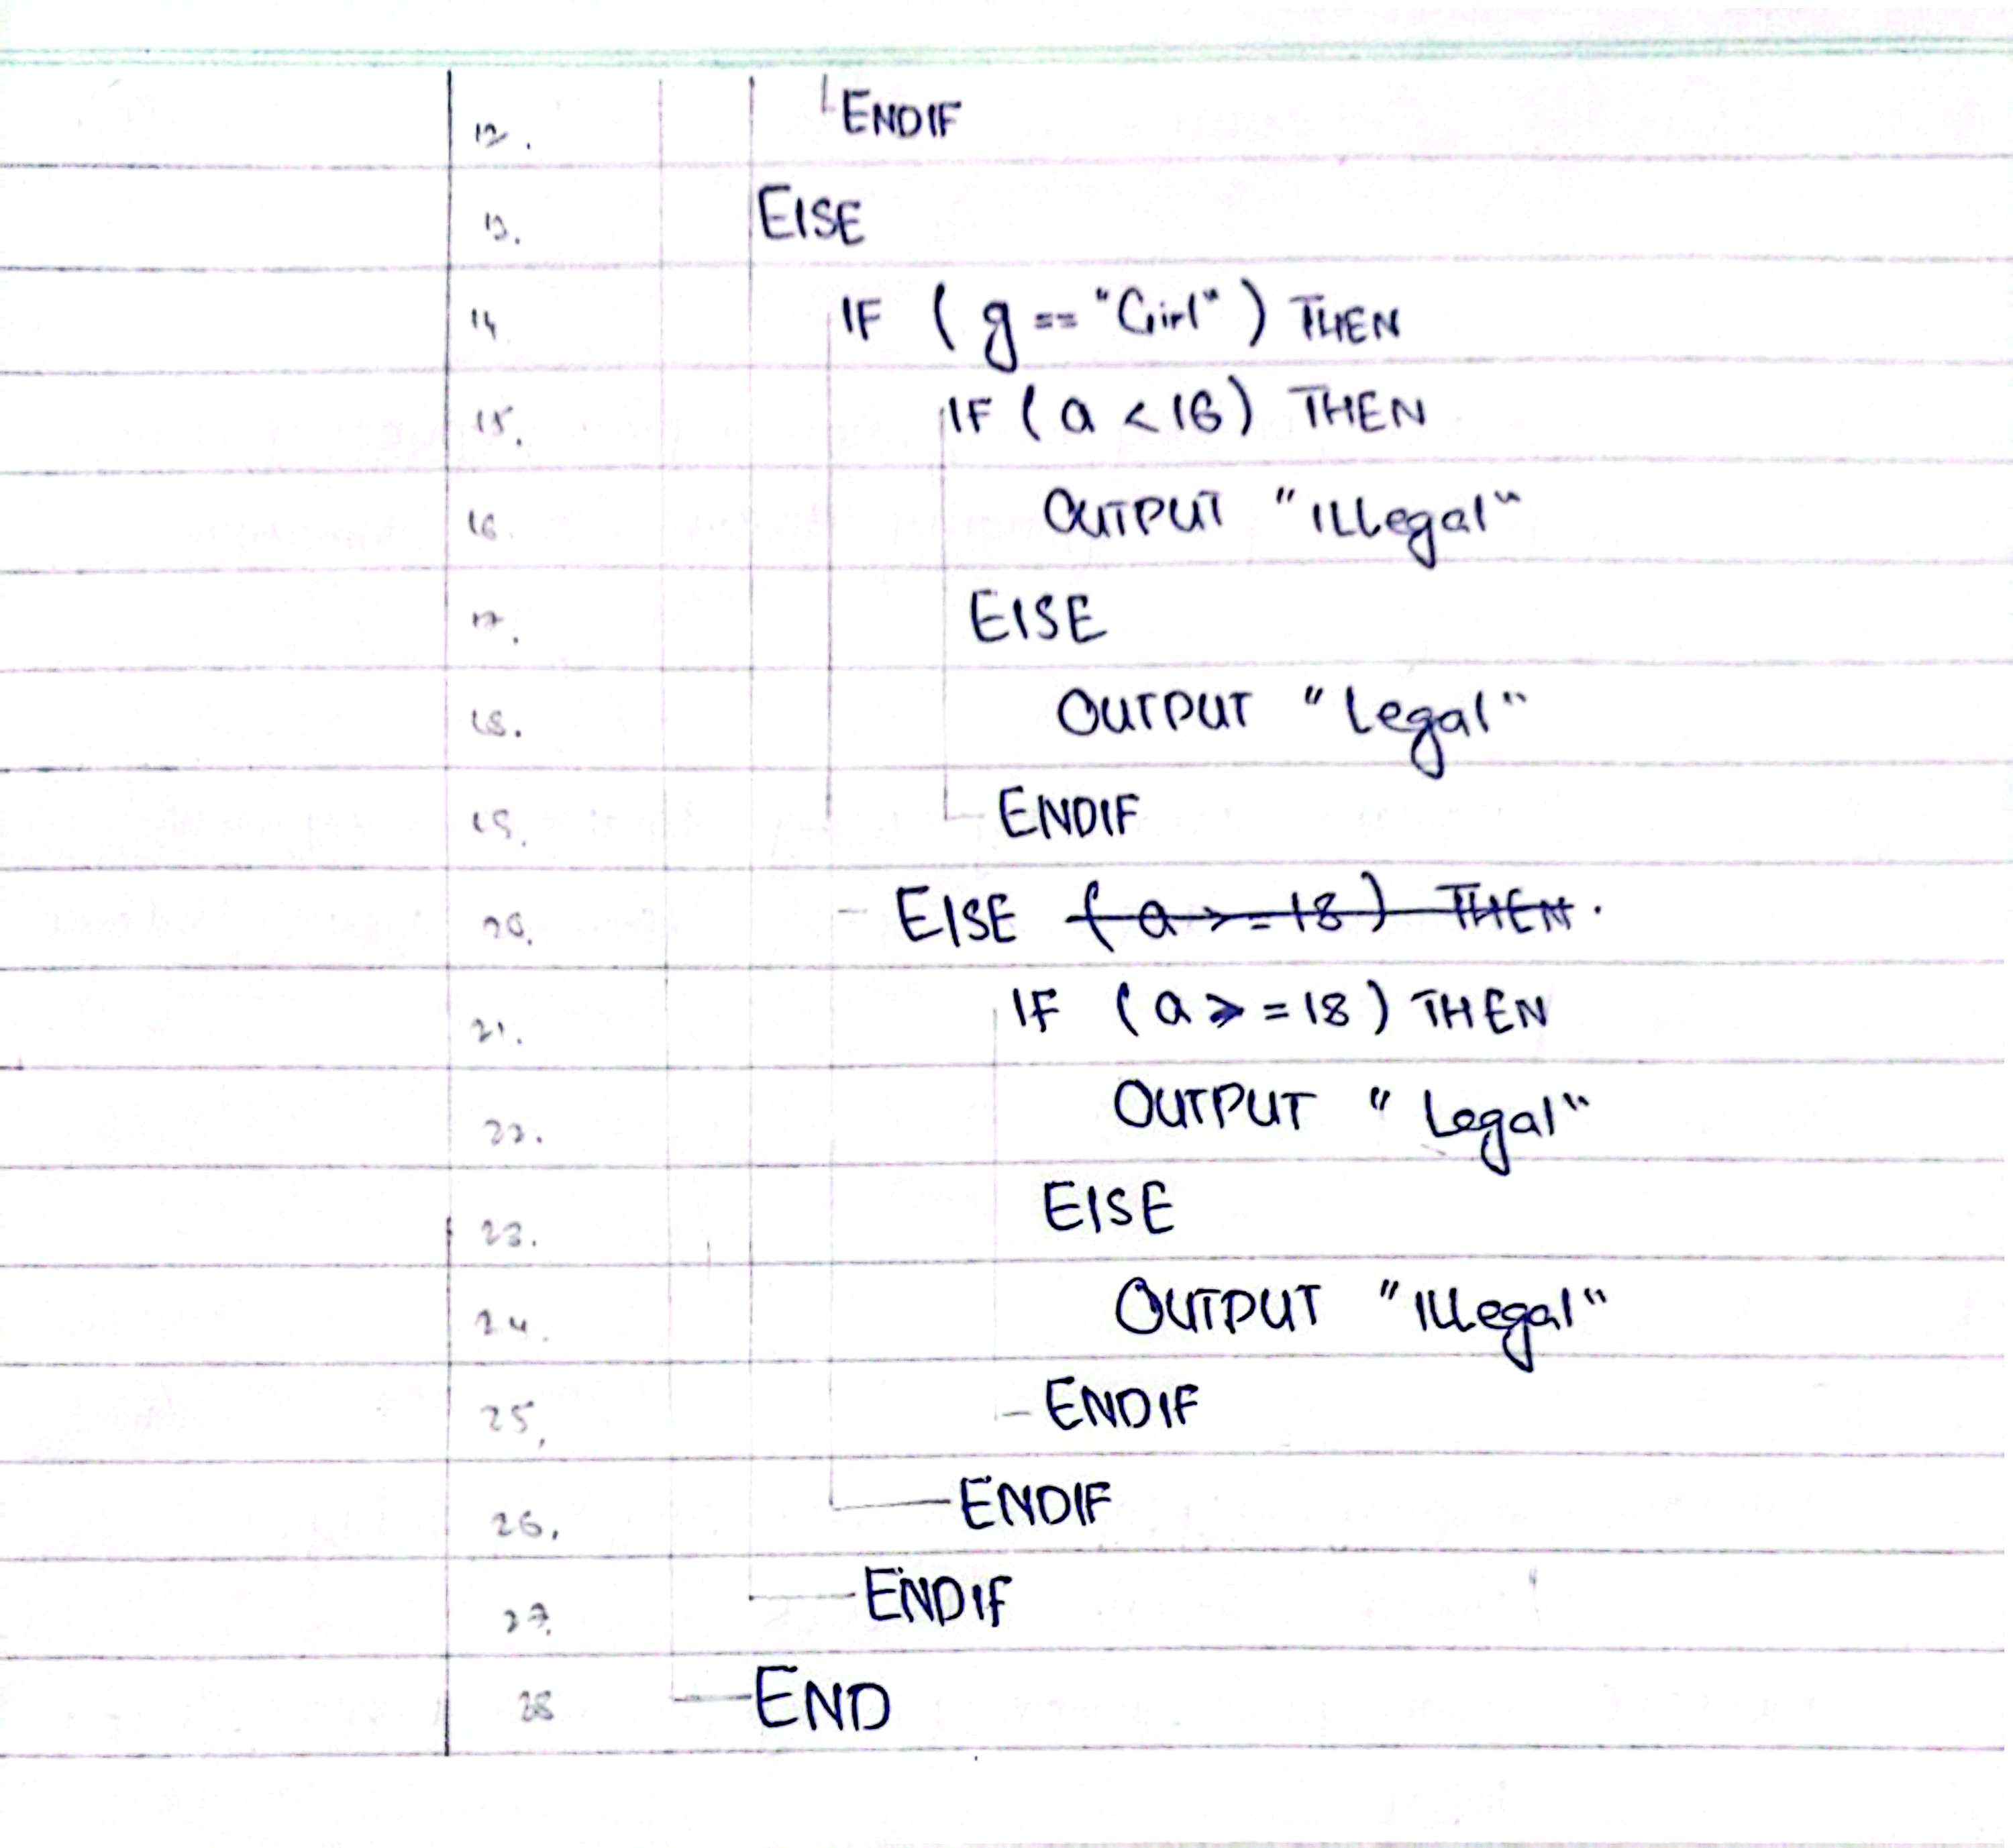 12. ENDIF
13. ELSE
14 IF ( g == "Girl" ) THEN
15. IF ( a < 16 ) THEN
16 OUTPUT "Illegal"
17. ELSE
18. OUTPUT "Legal"
19. ENDIF
20. ELSE ( a >= 18 ) THEN.
21. IF ( a >= 18 ) THEN
22. OUTPUT "Legal"
23. ELSE
24. OUTPUT "Illegal"
25. ENDIF
26. ENDIF
27. ENDIF
28 END